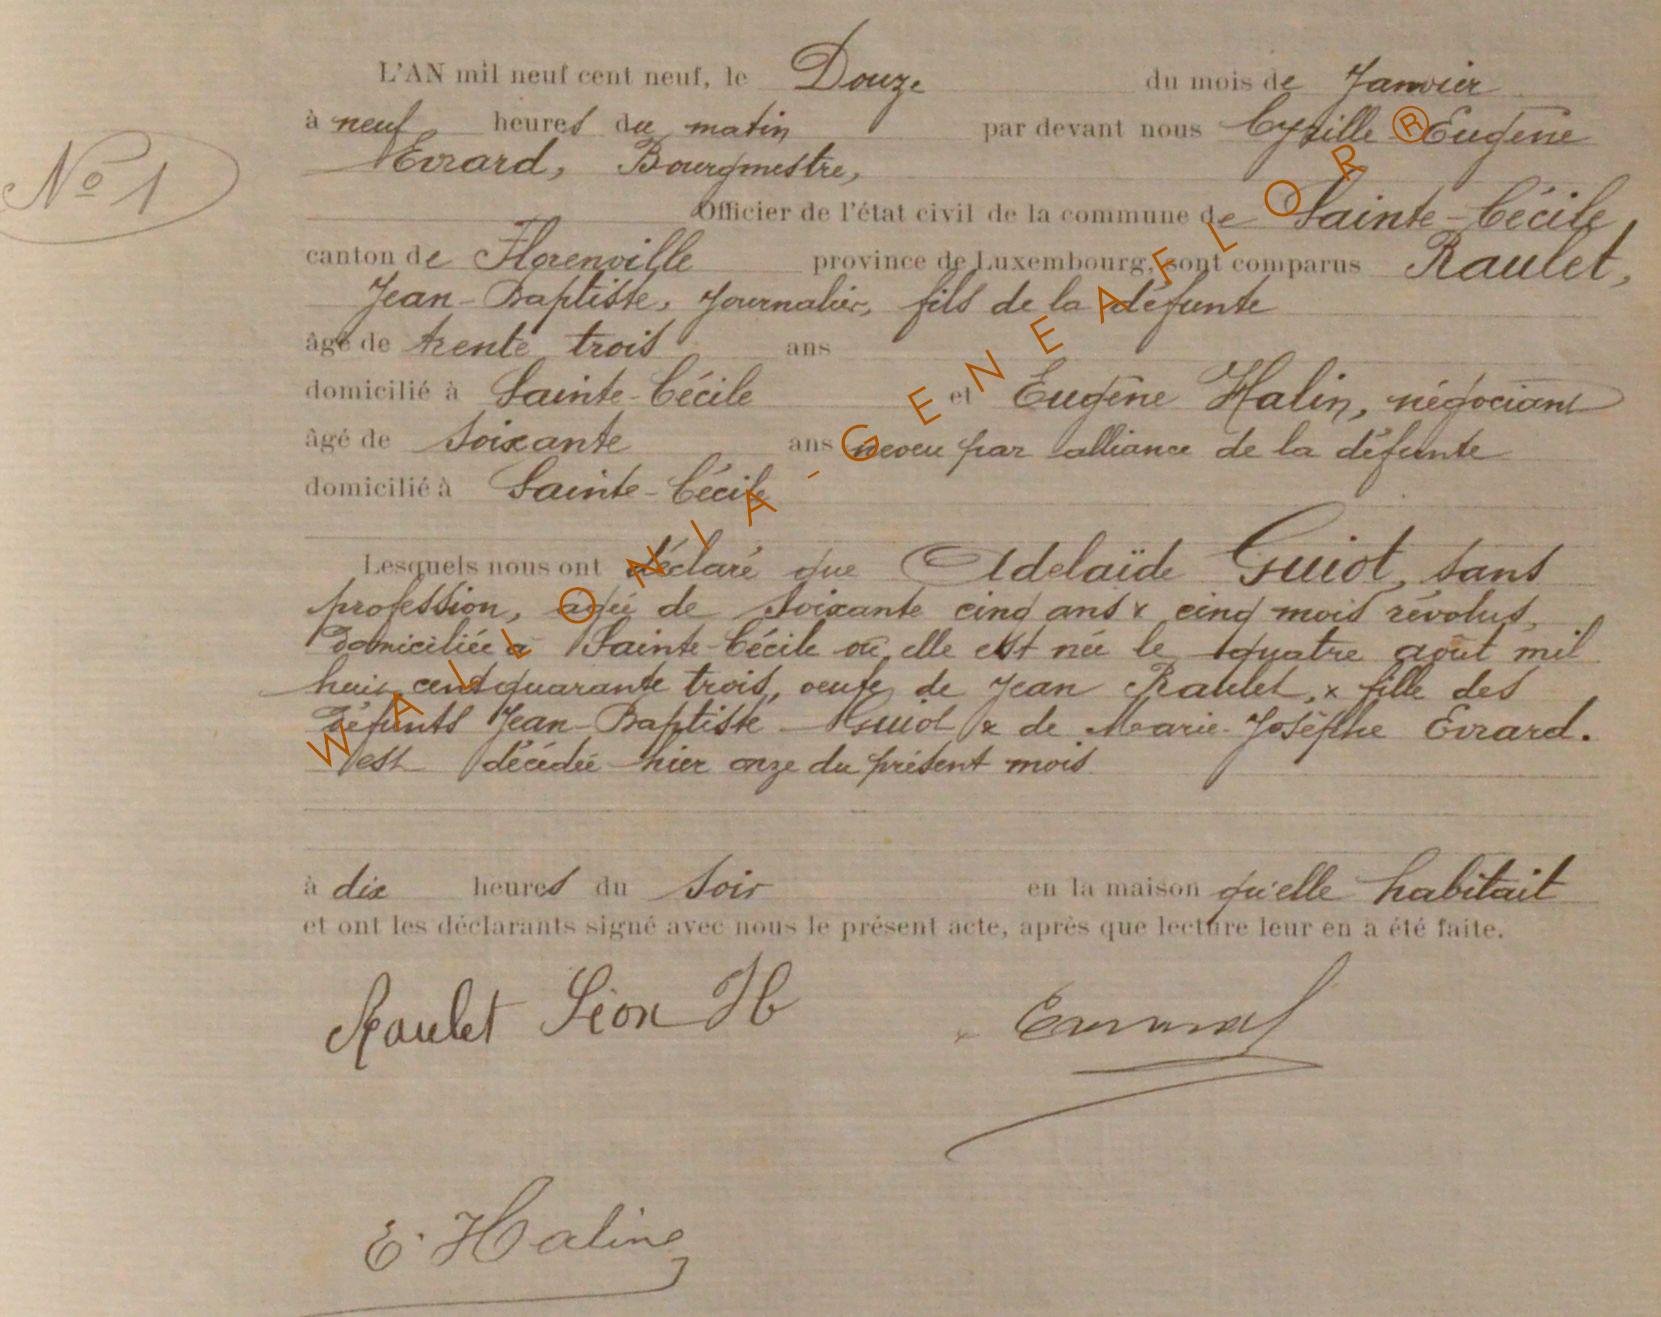 L'AN mil neuf cent neuf, le Douze du mois de Janvier
à neuf heures du matin par devant nous Cyrille Eugène
Evrard, Bourgmestre,
N° 1
Officier de l'état civil de la commune de Sainte-Cécile
canton de Florenville province de Luxembourg, sont comparus Raulet,
Jean-Baptiste, journalier, fils de la défunte
âgé de trente trois ans
domicilié à Sainte-Cécile et Eugène Halin, négociant
âgé de soixante ans neveu par alliance de la défunte
domicilié à Sainte-Cécile
Lesquels nous ont déclaré que Adelaïde Guiot, sans
profession, agée de soixante cinq ans & cinq mois révolus,
domiciliée à Sainte-Cécile où elle est née le quatre août mil
huit cent quarante trois, veuve de Jean Raulet, & fille des
défunts Jean-Baptiste Guiot & de Marie-Josèphe Evrard.
est décédée hier onze du présent mois
à dix heures du soir en la maison qu'elle habitait
et ont les déclarants signé avec nous le présent acte, après que lecture leur en a été faite.
Raulet Léon
E. Haline
WALLONIA-GENEAFLOR®